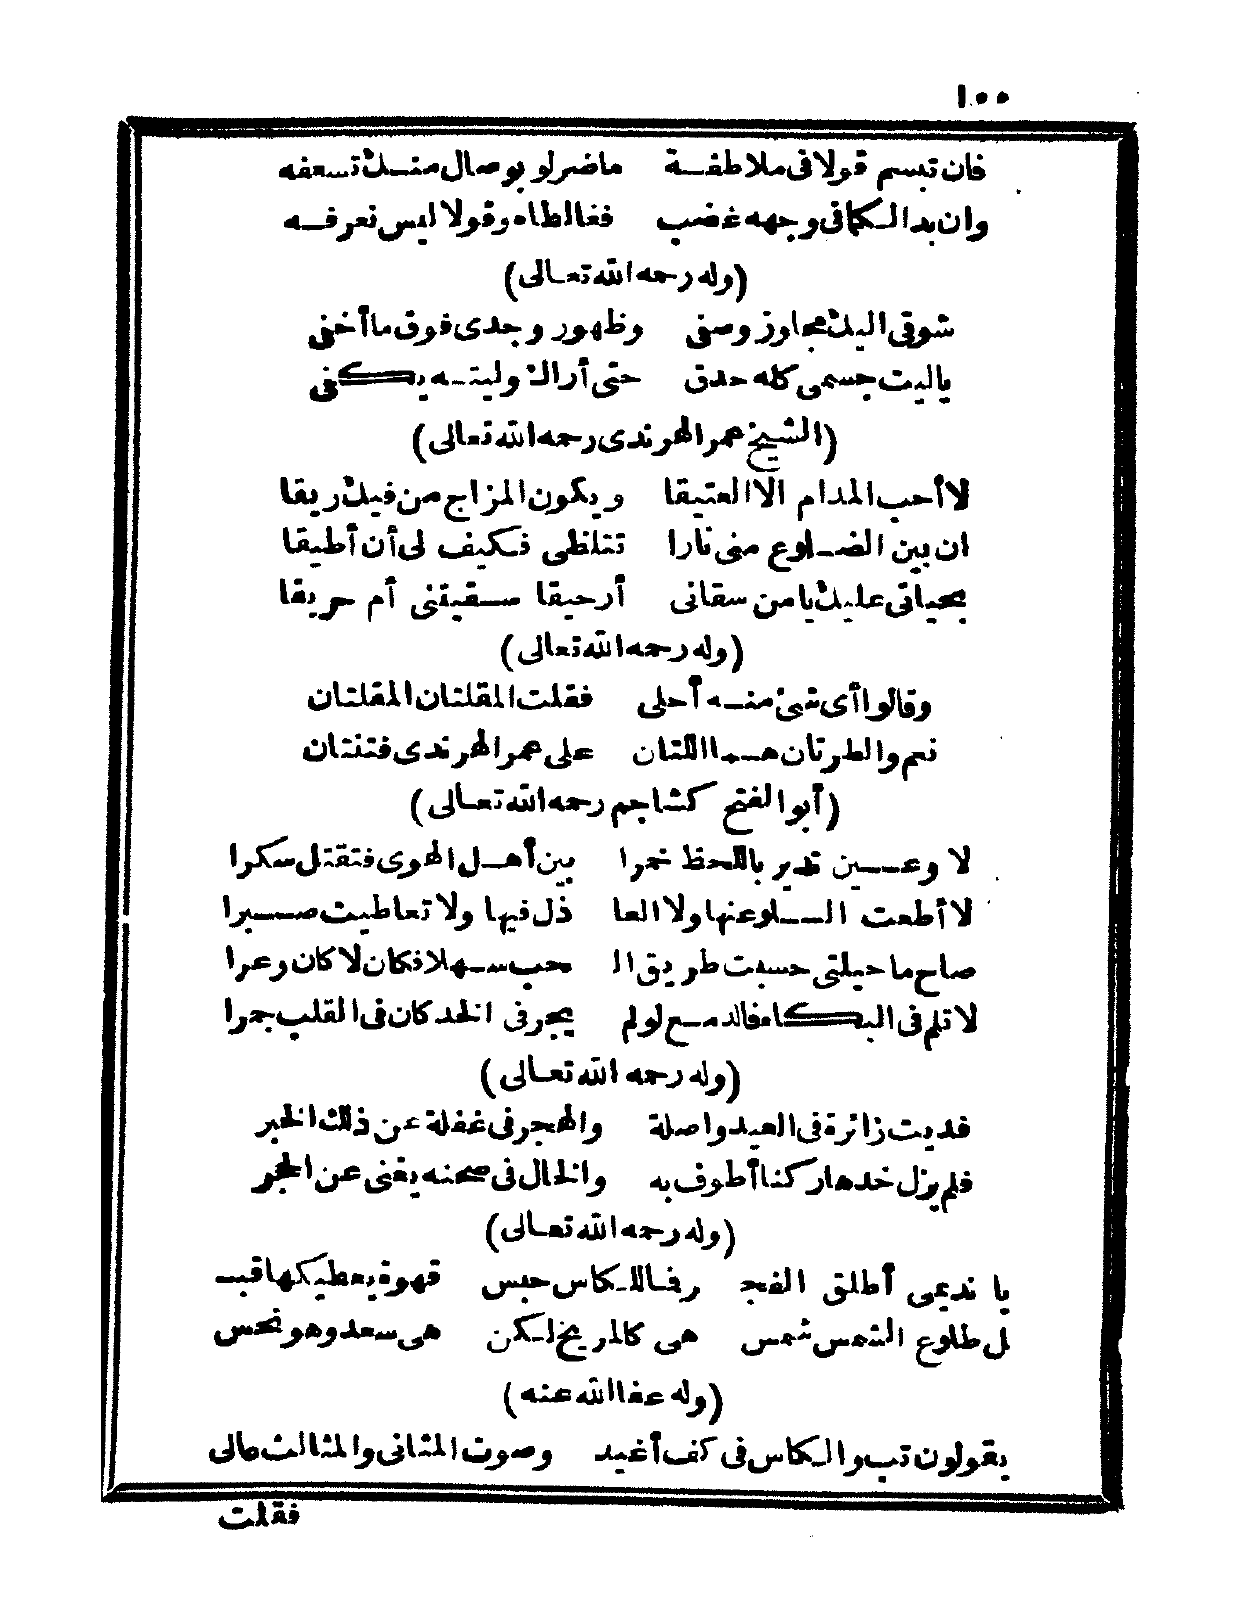 ١٠٠
فان تبسم قولا فى ملاطفة ماضر لو بوصال منك تسعفه
وان بدا لكما فى وجهه غضب فغالطاه وقولا ليس نعرفه
(وله رحمه الله تعالى)
شوقى اليك مجاوز وصفى وظهور وجدى فوق ما أخفى
ياليت جسمى كله حدق حتى أراك وليته يكفى
(الشيخ عمر الهرندى رحمه الله تعالى)
لا أحب المدام الا العتيقا ويكون المزاج من فيك ريقا
ان بين الضلوع منى نارا تتلظى فكيف لى أن أطيقا
بحياتى عليك يا من سقانى أرحيقا سقيتنى أم حريقا
(وله رحمه الله تعالى)
وقالوا أى شئ منه أحلى فقلت المقلتان المقلتان
نعم والطرتان هما اللتان على عمر الهرندى فتنتان
(أبو الفتح كشاجم رحمه الله تعالى)
لا وعين تدير باللحظ خمرا بين أهل الهوى فتقتل سكرا
لا أطعت السلو عنها ولا العا ذل فيها ولا تعاطيت صبرا
صاح ما حيلتى حسبت طريق ال حب سهلا فكان لا كان وعرا
لا تلم فى البكاء فالدمع لو لم يجر فى الخد كان فى القلب جمرا
(وله رحمه الله تعالى)
فديت زائرة فى العيد واصلة والهجر فى غفلة عن ذلك الخبر
فلم يزل خدها ركنا أطوف به والخال فى صحنه يغنى عن الحجر
(وله رحمه الله تعالى)
يا نديمى أطلق الفج‍ر فما للكاس حبس قهوة يعطيكها قب‍
ل طلوع الشمس شمس هى كالمريخ لكن هى سعد وهو نحس
(وله عفا الله عنه)
يقولون تب والكاس فى كف أغيد وصوت المثانى والمثالث عالى
فقلت